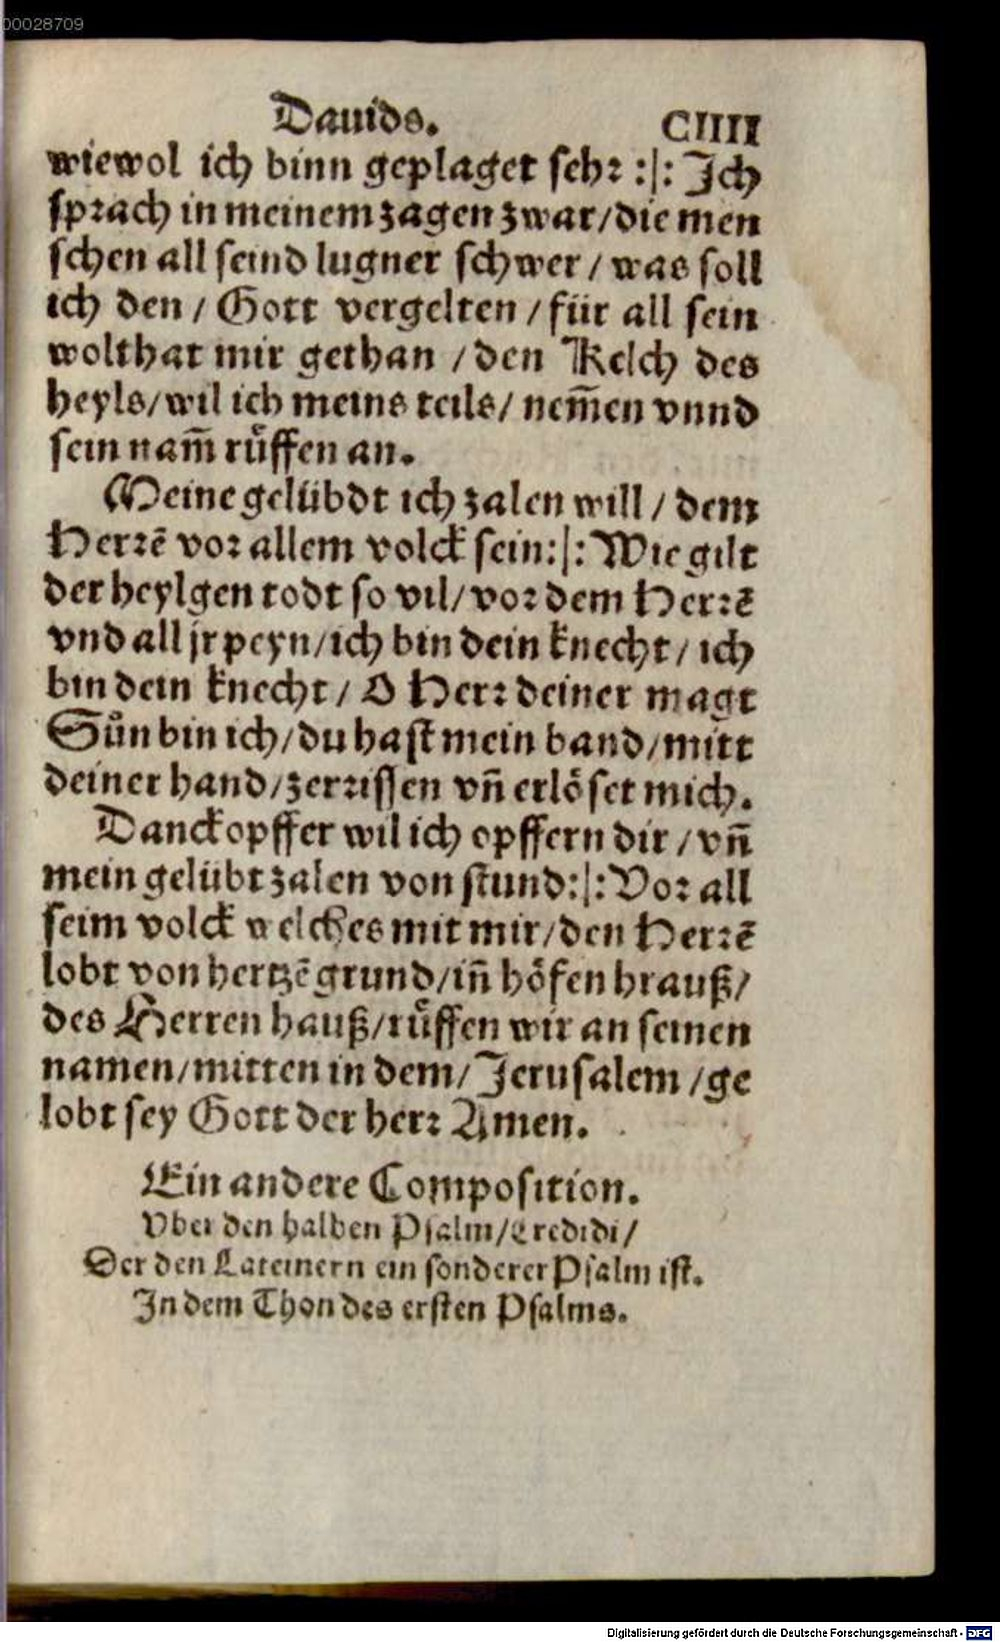 00028709
Dauids. CIIII
wiewol ich binn geplaget sehr :|: Jch
sprach in meinem zagen zwar/die men
schen all seind lugner schwer / was soll
ich den / Gott vergelten / für all sein
wolthat mir gethan / den Kelch des
heyls/wil ich meins teils/ nem̃en vnnd
sein nam̃ růffen an.
Meine gelübdt ich zalen will / dem
Herrē vor allem volck sein:|: Wie gilt
der heylgen todt so vil/ vor dem Herrē
vnd all jr peyn/ich bin dein knecht/ ich
bin dein knecht / O Herr deiner magt
Sůn bin ich/du hast mein band/mitt
deiner hand/zerrissen vñ erlöset mich.
Danckopffer wil ich opffern dir / vñ
mein gelübt zalen von stund:|: Vor all
seim volck welches mit mir/den Herrē
lobt von hertzē grund/iñ höfen hrauß/
des Herren hauß/růffen wir an seinen
namen/mitten in dem/ Jerusalem /ge
lobt sey Gott der herr Amen.
Ein andere Composition.
Vber den halben Psalm/Credidi/
Der den Lateinern ein sonderer Psalm ist.
In dem Thon des ersten Psalms.
Digitalisierung gefördert durch die Deutsche Forschungsgemeinschaft - DFG